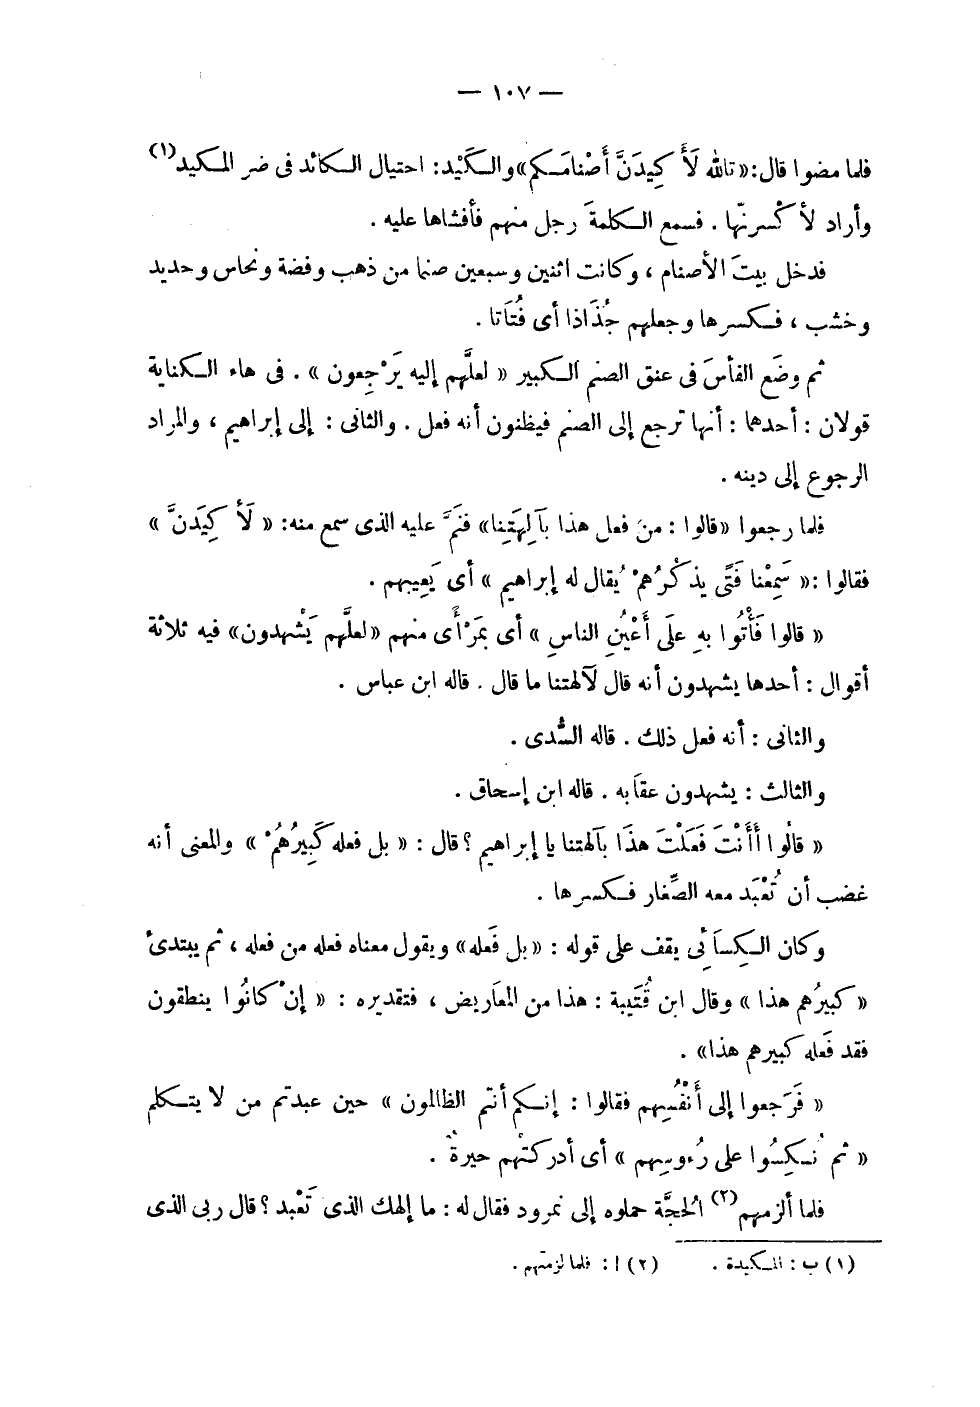 — ١٠٧ —
فلما مضوا قال:«تالله لَأَكِيدَنَّ أَصْنامَكم»والكَيْد: احتيال الكائد فى ضر المكيد(١)
وأراد لأكْسرنّها . فسمع الكلمةَ رجل منهم فأفشاها عليه .
فدخل بيتَ الأصنام ، وكانت اثنين وسبعين صنما من ذهب وفضة ونحاس وحديد
وخشب ، فكسرها وجعلهم جُذَاذا أى فُتَاتا .
ثم وضَع الفأسَ فى عنق الصنم الكبير « لعلَّهم إليه يَرْجِعون » . فى هاء الكناية
قولان : أحدهما : أنها ترجع إلى الصنم فيظنون أنه فعل . والثانى : إلى إبراهيم ، والمراد
الرجوع إلى دينه .
فلما رجعوا «قالوا : من فعل هذا بآلِهَتِنا» فنَمَّ عليه الذى سمع منه: « لَأَكِيدَنَّ »
فقالوا :« سَمِعْنا فَتًى يذكُرُهمْ يُقال له إبراهيم » أى يَعِيبهم .
« قالوا فَأْتُوا بهِ علَى أَعْيُنِ الناسِ » أى بمَرْأًى منهم «لعلَّهم يَشْهدون» فيه ثلاثة
أقوال : أحدها يشهدون أنه قال لآلهتنا ما قال . قاله ابن عباس .
والثانى : أنه فعل ذلك . قاله السُّدى .
والثالث : يشهدون عقابه . قاله ابن إسحاق .
« قالُوا أَأَنْتَ فَعَلْتَ هذَا بآلهتنا يا إبراهيم ؟ قال : « بل فعله كَبِيرُهُمْ » والمعنى أنه
غضب أن تُعْبَد معه الصِّغار فكسرها .
وكان الكِسَائى يقف على قوله : «بل فَعله» ويقول معناه فعله من فعله ، ثم يبتدئ
« كبيرُهم هذا » وقال ابن قُتَيبة : هذا من المعَاريض ، فتقديره : « إنْ كانُوا ينطقون
فقد فَعله كبيرهم هذا» .
« فَرَجعوا إلى أَنْفُسِهم فقالوا : إنكم أنتم الظالمون » حين عبدتم من لا يتكلم
« ثم نُكِسُوا على رُءوسِهم » أى أدركَتْهم حيرةٌ .
فلما ألزمهم(٢) الحجَّة حملوه إلى نمرود فقال له : ما إلهك الذى تَعْبد ؟ قال ربى الذى
(١) ب : المكيدة . (٢) ا : فلما لزمتهم .